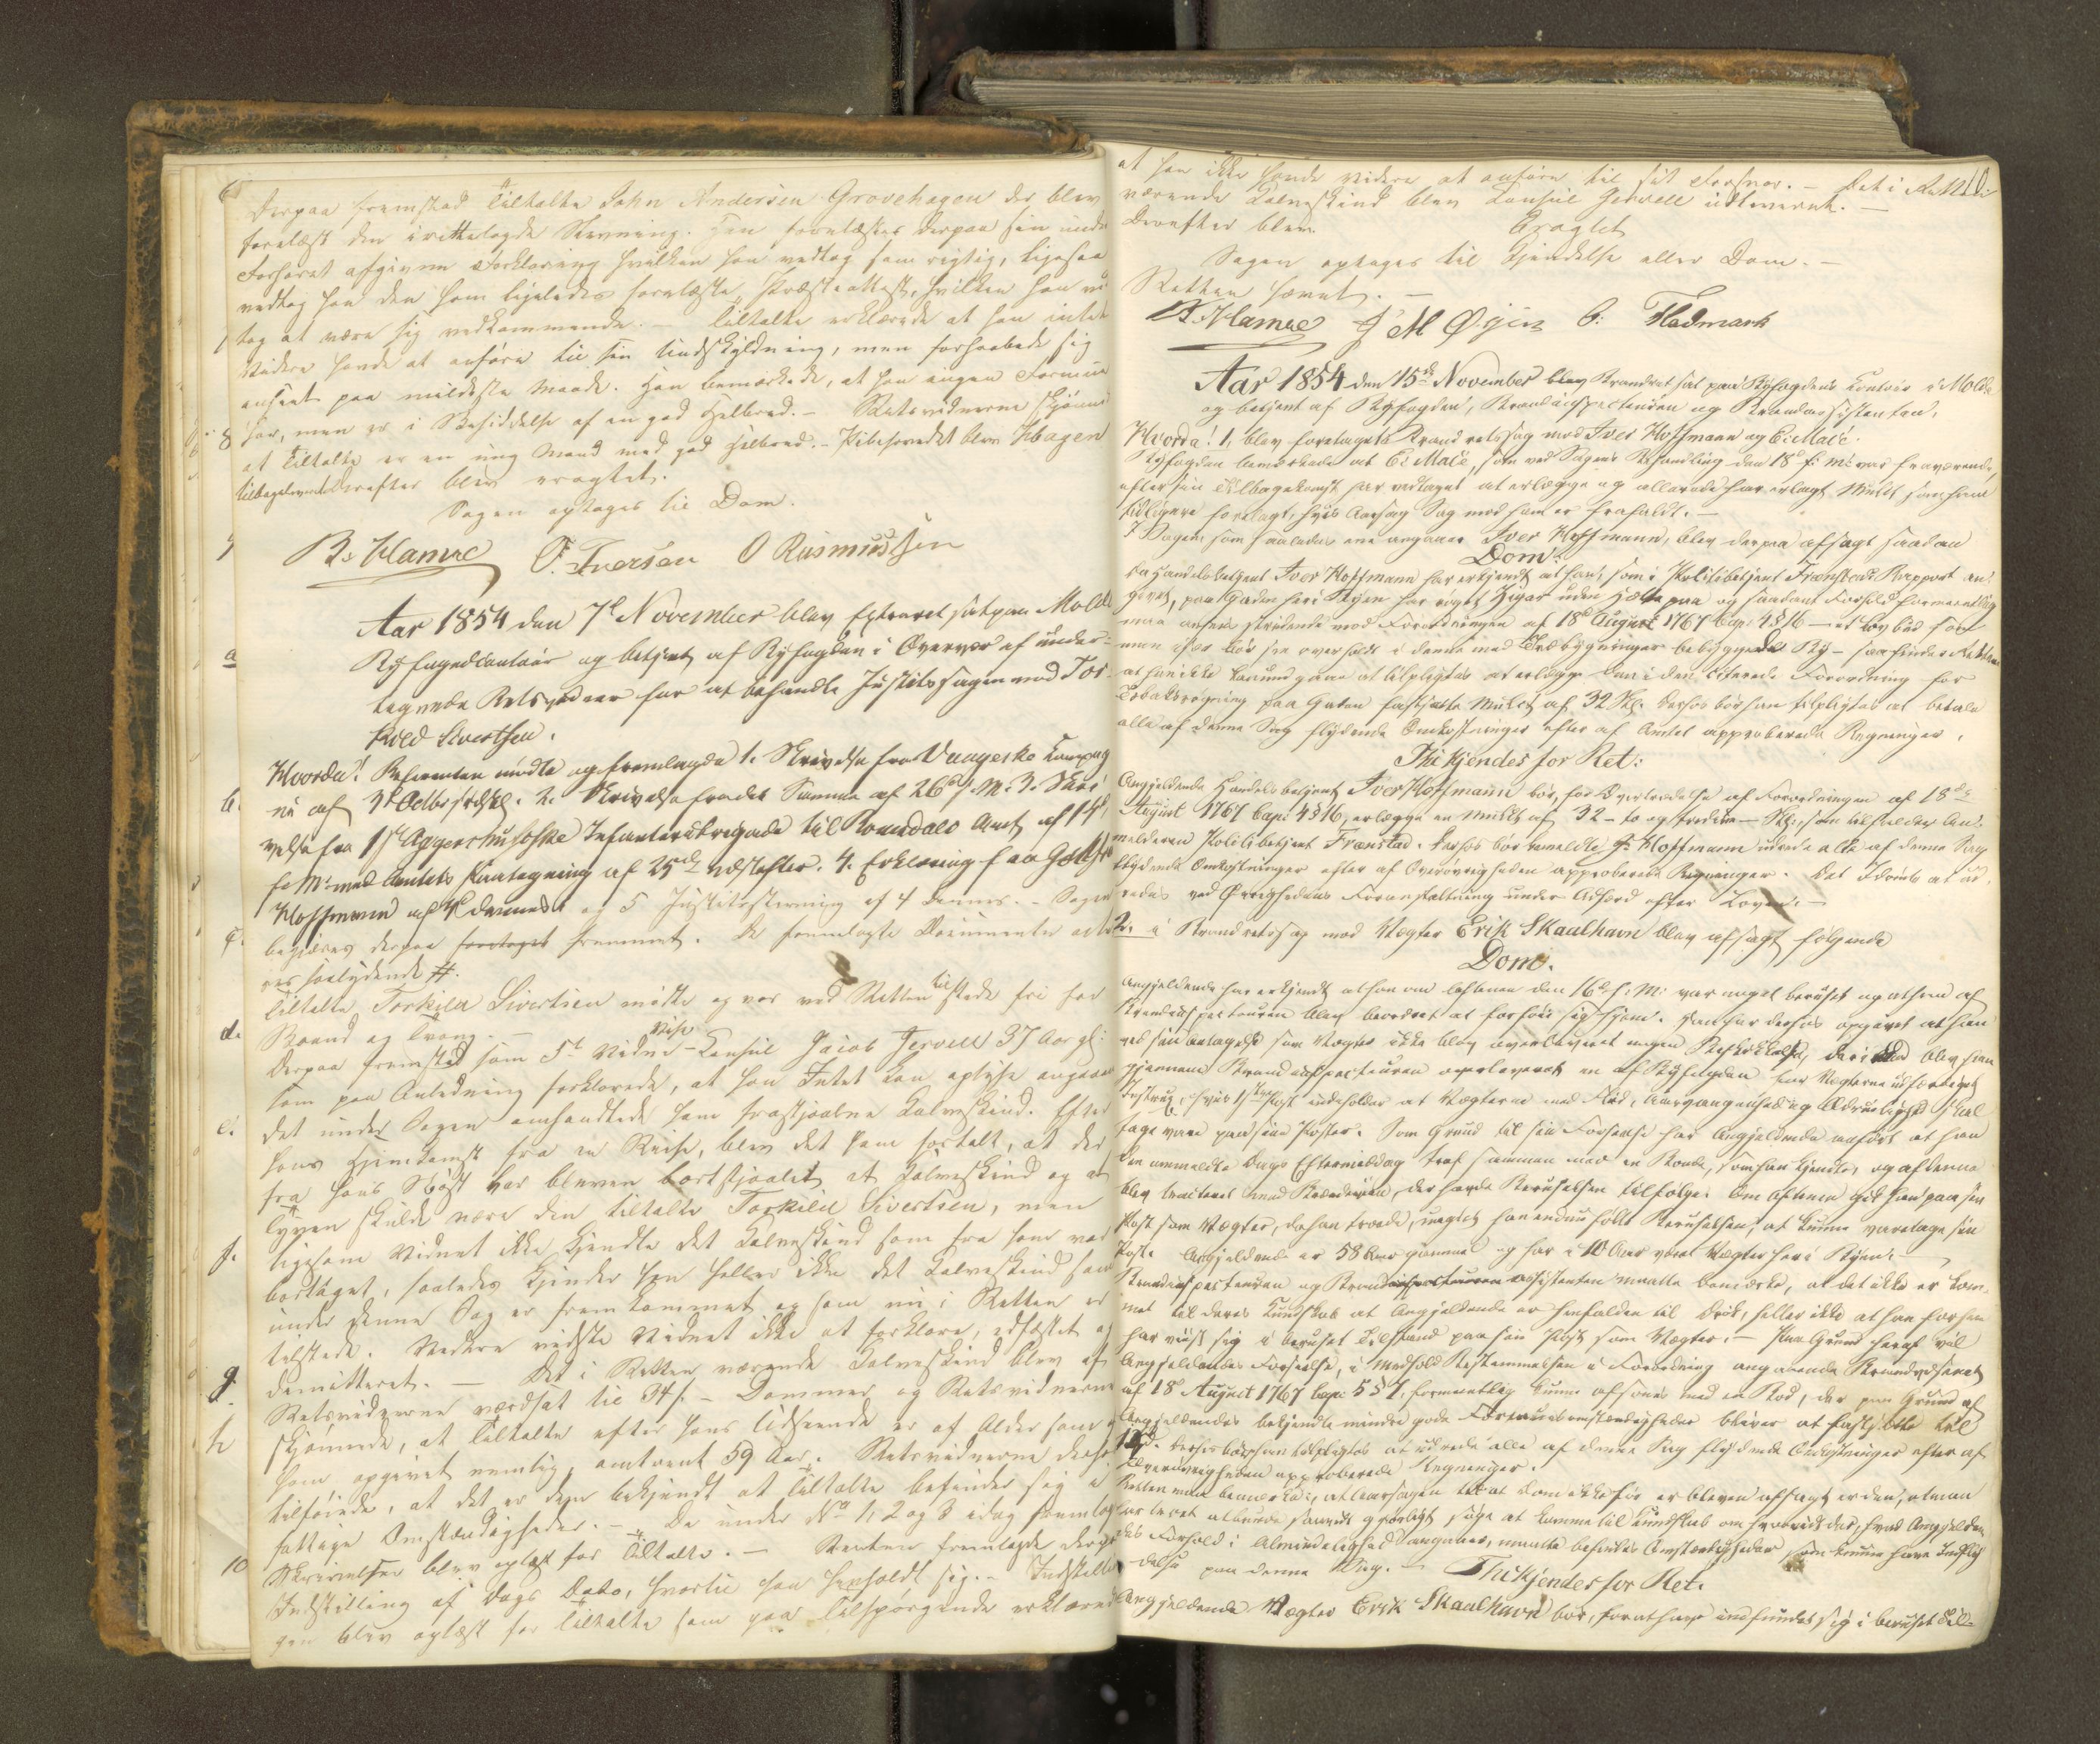 Derpaa fremstod Tiltalte John Andersen Grovehagen der blev
forelæst den irettelagde Stevning. Han forelæstes derpaa sin under
Forhøret afgivne Forklaring hvilken han vedtog som rigtig, ligesaa
vedtog han den ham ligeledes forelæste Præsteattest, hvilken han ved
tog at være sig vedkommende. – Tiltalte erklærede at han intet
videre havde at anføre til sin Undskyldning, men forhaabede sig
anseet paa mildeste Maade. Han bemærkede, at han ingen Formue
har, men er i Besiddelse af en god Helbred. – Retsvidnerne skjønne
at Tiltalte er en ung Mand med god Helbred. – Pibehovedet blev Hagen
tilbageleveret derefter blev eragtet.
Sagen optages til Dom.
B. Hamre O. Iversen O Rasmussen
Aar 1854 den 7de November blev Extraret sat paa Molde
Byfogedcontoir og betjent af Byfogden i Overvær af under-
tegnede Retsvidner for at behandle Justitssagen mod Tor-
kild Sivertsen.
Hvorda! Referenten mødte og fremlagde 1. Skrivelse fra Vaageske Compag
ni af 3die Octbr sidstl. 2. Skrivelse fra det Samme af 26de s. M. 3. Skri
velse fra 1ste Aggershusiske Infanteribrigade til Romsdals Amt af 14de
s. M. med Amtets Paategning af 25de næstefter. 4. Erklæring fra
Hoffmann af 4de dennes og 5 Justitsstevning af 4 dennes. – Sagen
begjæres derpaa foretaget fremmet. De fremlagte Documenter acte
res saalydende #.
Tiltalte Torkild Sivertsen mødte og var ved Retten tilstede fri for
Baand og Tvang. –
Derpaa fremstod som 5te Vidne Vice-Consul Jacob Jervell 37 Aar gl:
som paa Anledning forklarede, at han Intet kan oplyse angaaende
det under Sagen omhandlede ham frastjaalne Kalveskind. Efter
hans Hjemkomst fra en Reise, blev det ham fortalt, at der
fra hans var bleven bortstjaalet et Kalveskind og at
Tyven skulde være den tiltalte Torkild Sivertsen, men
ligesom Vidnet ikke kjendte det Kalveskind som fra ham var
borttaget, saaledes kjender han heller ikke det Kalveskind som
under denne Sag er fremkommet og som nu i Retten er
tilstede. Videre vidste Vidnet ikke at forklare, edfæstet og
demitteret. – Det i Retten værende Kalveskind blev af
Retsvidnerne værdsat til 34 s. – Dommer og Retsvidnerne
skjønnede, at Tiltalte efter hans Udseende er af Alder som
ham opgivet nemlig omtrent 59 Aar. Retsvidnerne derhos
tilføiede, at det er dem bekjendt at Tiltalte befinder sig i
fattige Omstændigheder. – De under No 1, 2 og 3 idag fremlagte
Skrivelser blev oplæst for Tiltalte. – Retten fremlagde derpaa
Indstilling af Dags Dato, hvortil han henholdt sig. – Indstillin
gen blev oplæst for Tiltalte som paa Tilspørgende erklærede
at han ikke havde videre at anføre til sit Forsvar. – Det i Retten 10.
værende Kalveskind blev Consul Jervell udleveret. –
Derefter blev
Eragtet
Sagen optages til Kjendelse eller Dom. –
Retten hævet. –
B. Hamre J M Øyen O: Fladmark
Aar 1854 den 15de November blev Brandret sat paa Byfogdens Contoir i Molde
og betjent af Byfogden, Brandinspecteuren og Brandassistenten.
Hvorda! 1, blev foretaget Brandretssag mod Iver Hoffmann og C: Macé.
Byfogden bemærkede at C: Macé, som ved Sagens Behandling den 18de f. M. var fraværende,
efter sin Tilbagekomst har vedtaget at erlægge og allerede har erlagt Mulct som ham
tidligere forelagt, hvis Aarsag Sag mod ham er frafaldt. –
I Sagen, som saaledes ene angaaer Iver Hoffmann, blev derpaa afsagt saadan
Dom:
Da Handelsbetjent Iver Hoffmann har erkjendt at han, som i Politibetjent Frænstads Rapport an-
givet, paa Gaden her i Byen har røget Zigar uden Hætte paa og saadant Forhold formeentlig
maa ansees stridende mod Forordningen af 18de August 1767 Cap. 4 § 16 – et Lovbud som
man især bør see overholdt i denne med Træbygninger bebyggede By – saa finder Retten
at han ikke kan undgaae at tilpligtes at erlægge den i den citerede Forordning for
Tobaksrøgning paa Gaden fastsatte Mulct af 32 Skl. Derhos bør han tilpligtes at betale
alle af denne Sag flydende Omkostninger efter af Amtet approberede Regninger.
Thi kjendes for Ret:
Angjeldende Handelsbetjent Iver Hoffmann bør, for Overtrædelse af Forordningen af 18de
August 1767 Cap: 4 § 16, erlægge en Mulct af 32 – to og tredive – Skl., som tilfalder An-
melderen Politibetjent Frænstad. Derhos bør bemeldte I. Hoffmann udrede alle af denne Sag
flydende Omkostninger efter af Overøvrigheden approberede Regninger. Det Idømte at ud-
redes ved Øvrighedens Foranstaltning under Adfærd efter Loven. –
2. i Brandretssag mod Vægter Erik Skaalhavn blev afsagt følgende
Dom.
Angjeldende har erkjendt at han om Aftenen den 16de f. M. var noget beruset og at han af
Brandinspecteuren blev beordret at forføie sig hjem. Han har derhos opgivet at han
ved sin Antagelse som Vægter ikke blev overleveret nogen Beskikkelse, derimod blev ham
gjennem Brandinspecteuren overleveret en af Byfogden for Vægterne udfærdiget
Instrux, hvis 1ste Post indeholder at Vægterne med Flid, Aarvaagenhed og Ædruelighed skal
tage vare paa sine Poster. Som Grund til sin Forseelse har Angjeldende anført at han
den anmeldte Dags Eftermiddag traf sammen med en Bonde, som han kjendte, og af denne
blev tracteret med Brændeviin, der havde Beruselsen tilfølge. Om Aftenen gik han paa sin
Post som Vægter, da han troede, uagtet han endnu følte Beruselsen, at kunne varetage sin
Post. Angjeldende er 58 Aar gammel og har i 10 Aar været Vægter her i Byen. –
Brandinspecteuren og Brandinspecteuren assistenten maatte bemærke, at det ikke er kom-
met til deres Kundskab at Angjeldende er henfalden til Drik, heller ikke at han forhen
har viist sig i beruset Tilstand paa sin Post som Vægter. – Paa Grund heraf vil
Angjeldendes Forseelse, i Medhold Bestemmelsen i Forordning angaaende Brandvæsenet
af 18de August 1767 Cap: 5 § 1, formeentlig kunne afsones med en Bod, der paa Grund af
Angjeldendes bekjendte mindre gode Formuesomstændigheder bliver at fastsætte til
Derhos bør han tilpligtes at udrede alle af denne Sag flydende Omkostninger efter af
Overøvrigheden approberede Regninger.
Retten maa bemærke, at Aarsagen til at Dom ikke før er bleven afsagt er den, at man
har troet at burde saavidt gjørligt søge at komme til Kundskab om hvorvidt der, hvad Angjelden
des Forhold i Almindelighed angaaer, maatte befindes Omstændigheder som kunne have Indfly
delse paa denne Sag. – Thi kjendes for Ret.
Angjeldende Vægter Erik Skaalhavn bør, for at have indfundet sig i beruset Til-